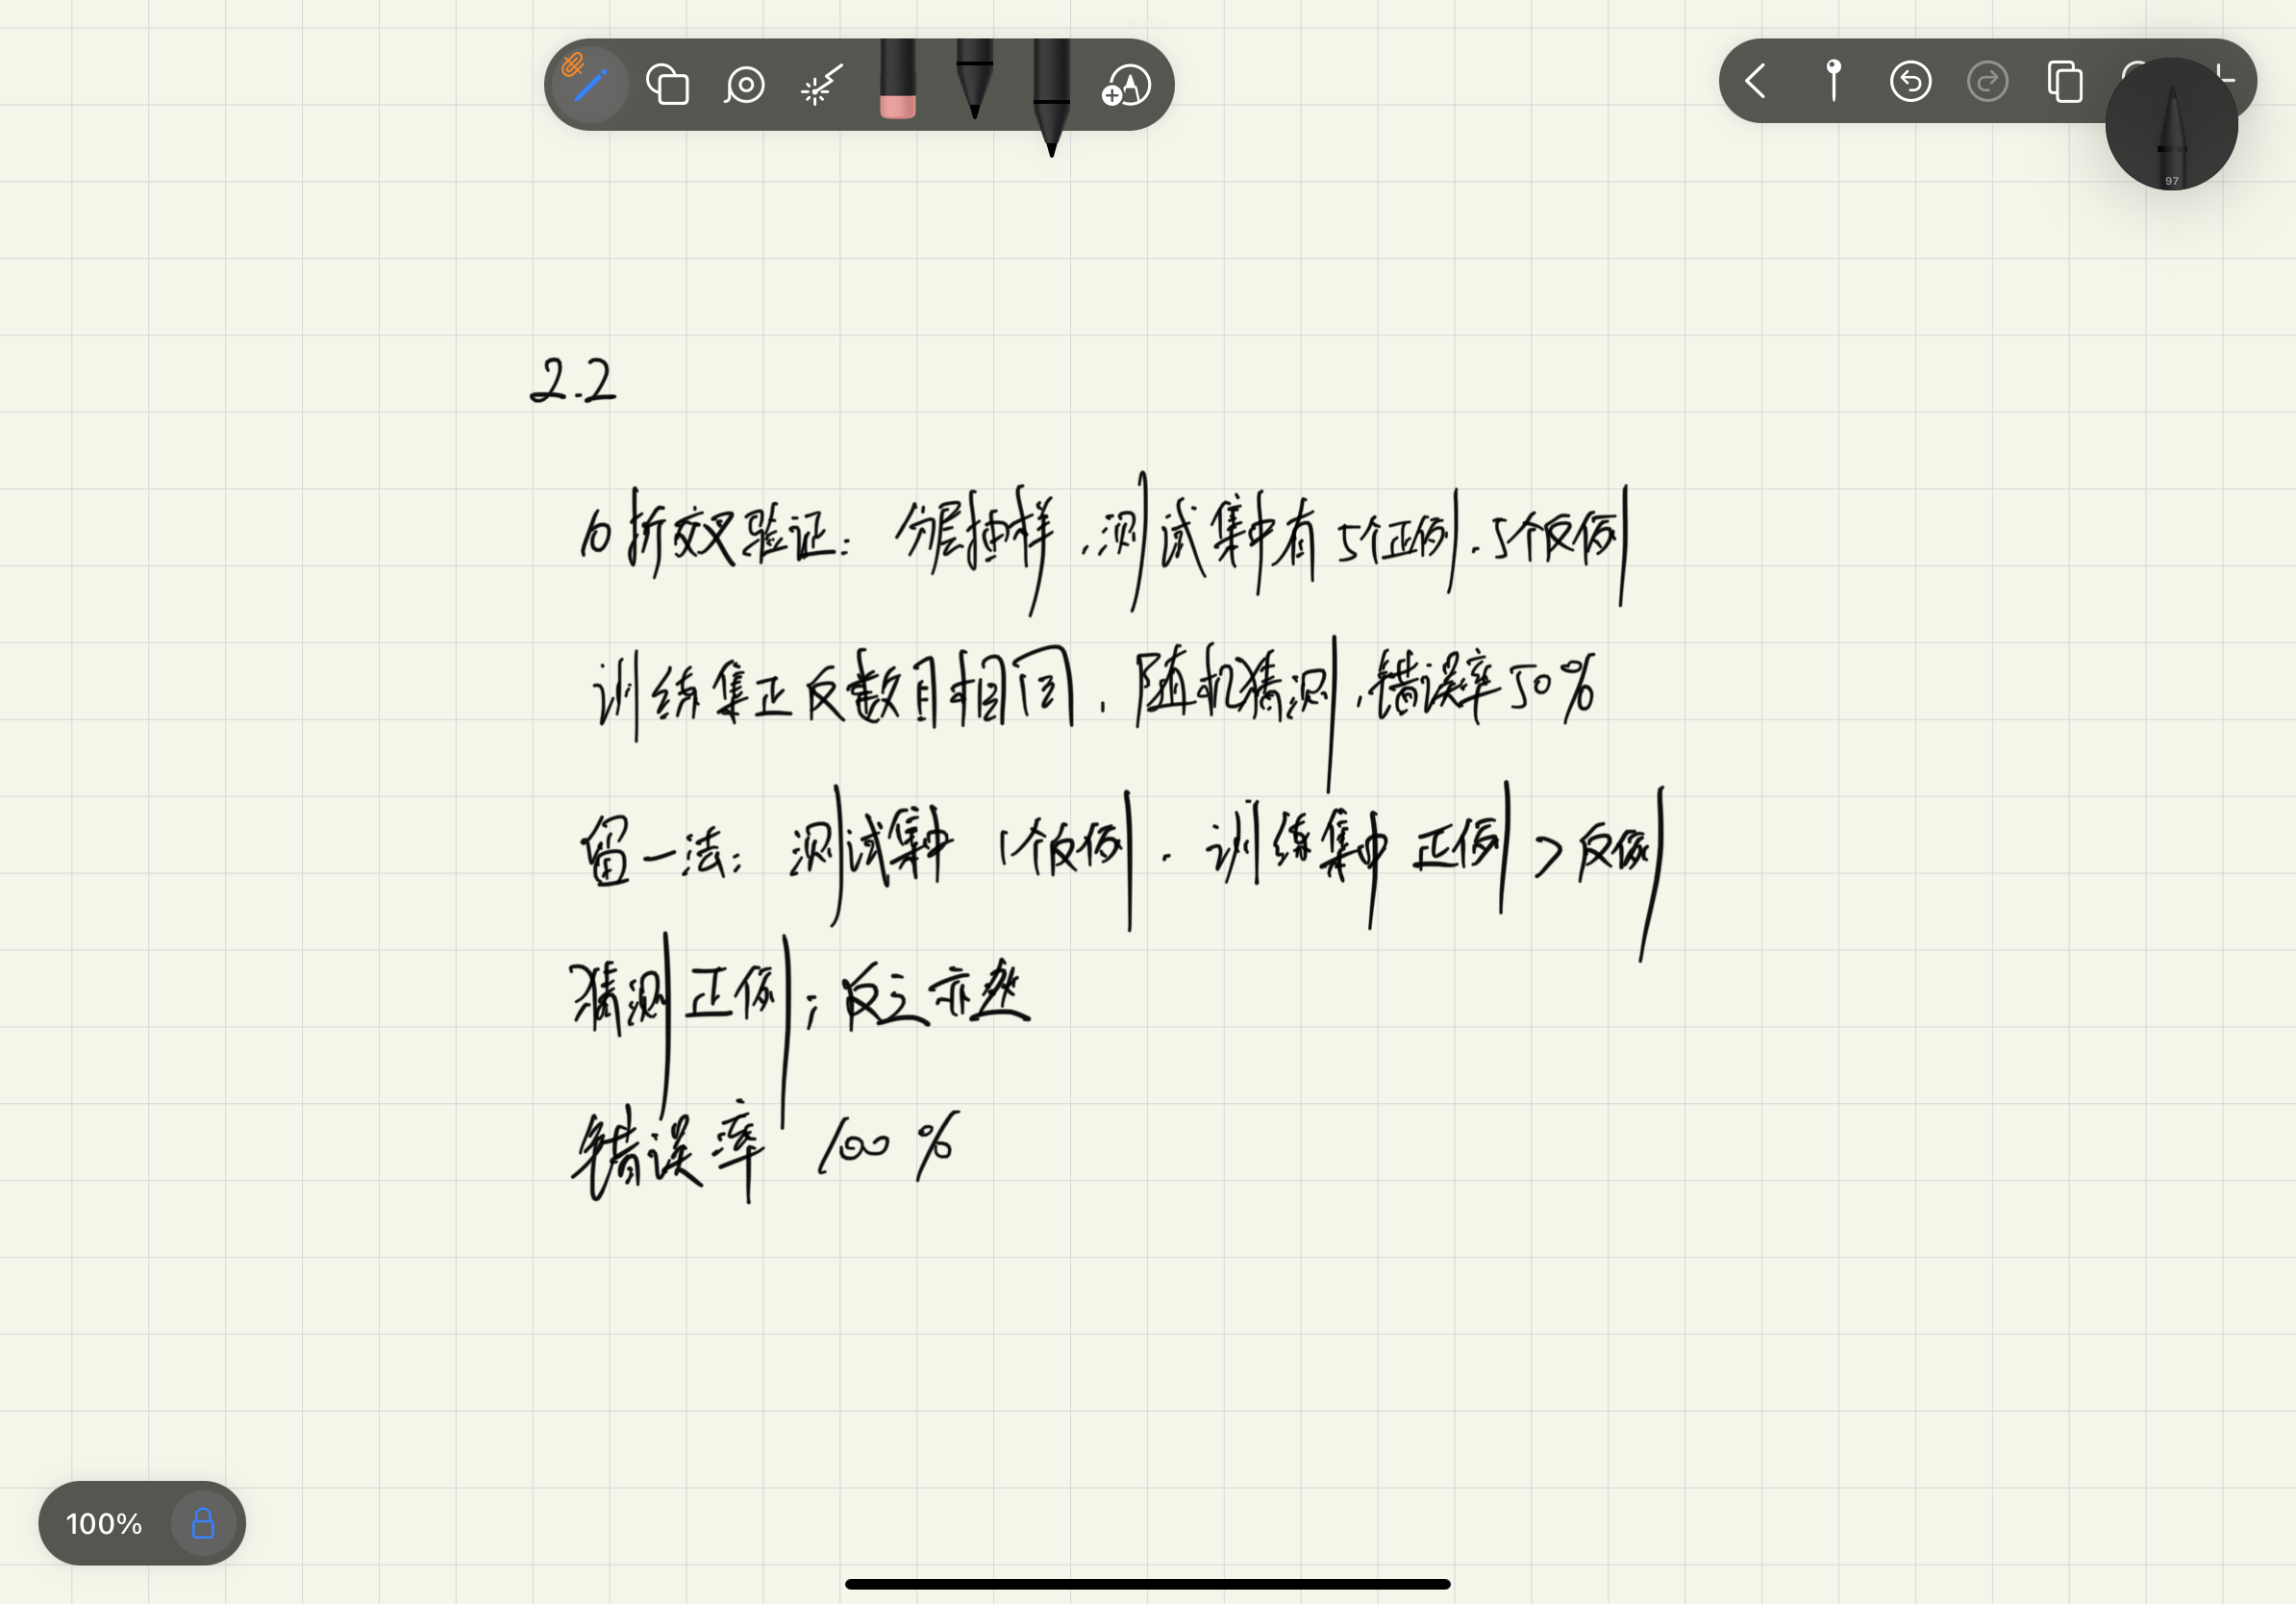 97
2.2
10折交叉验证：分层抽样，测试集中有5个正例，5个反例
训练集正反数目相同，随机猜测，错误率50%
留一法：测试集中 1个反例，训练集中 正例>反例
猜测正例；反之亦然
错误率 100%
100%